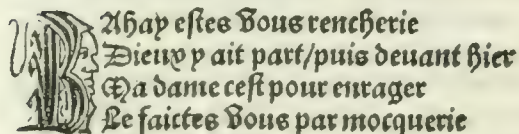 BAhay eſtes vous rencherie
Dieux y ait part/puis deuant hier
Ma dame ceſt pour enrager
Le faictes vous par mocquerie